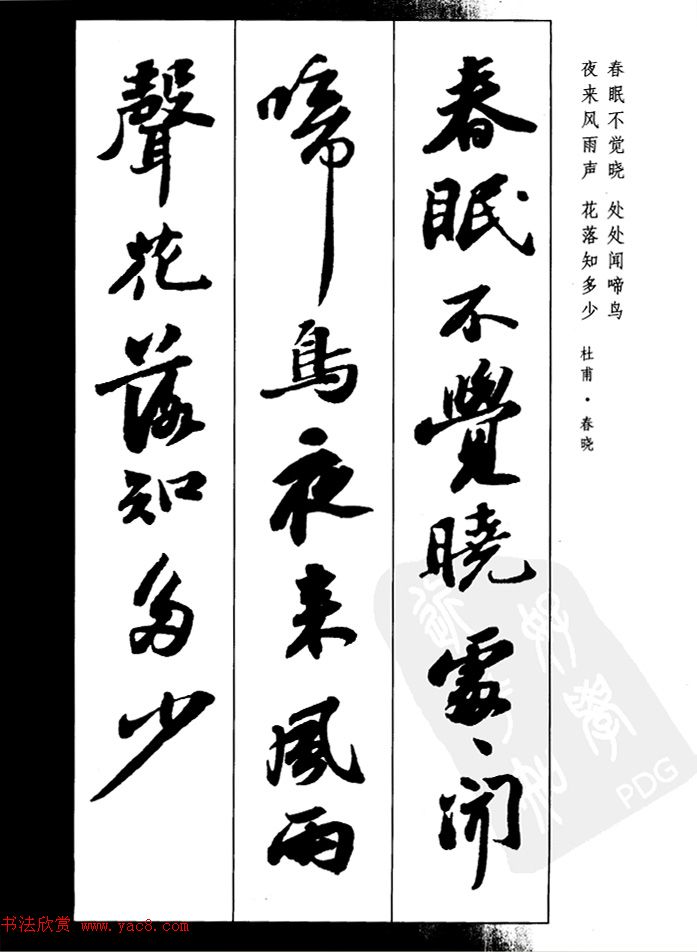 春眠不觉晓 处处闻啼鸟
夜来风雨声 花落知多少 杜甫·春晓
春眠不覺曉處、闻
啼鳥夜来風雨
聲花落知多少
PDG
书法欣赏 www.yac8.com